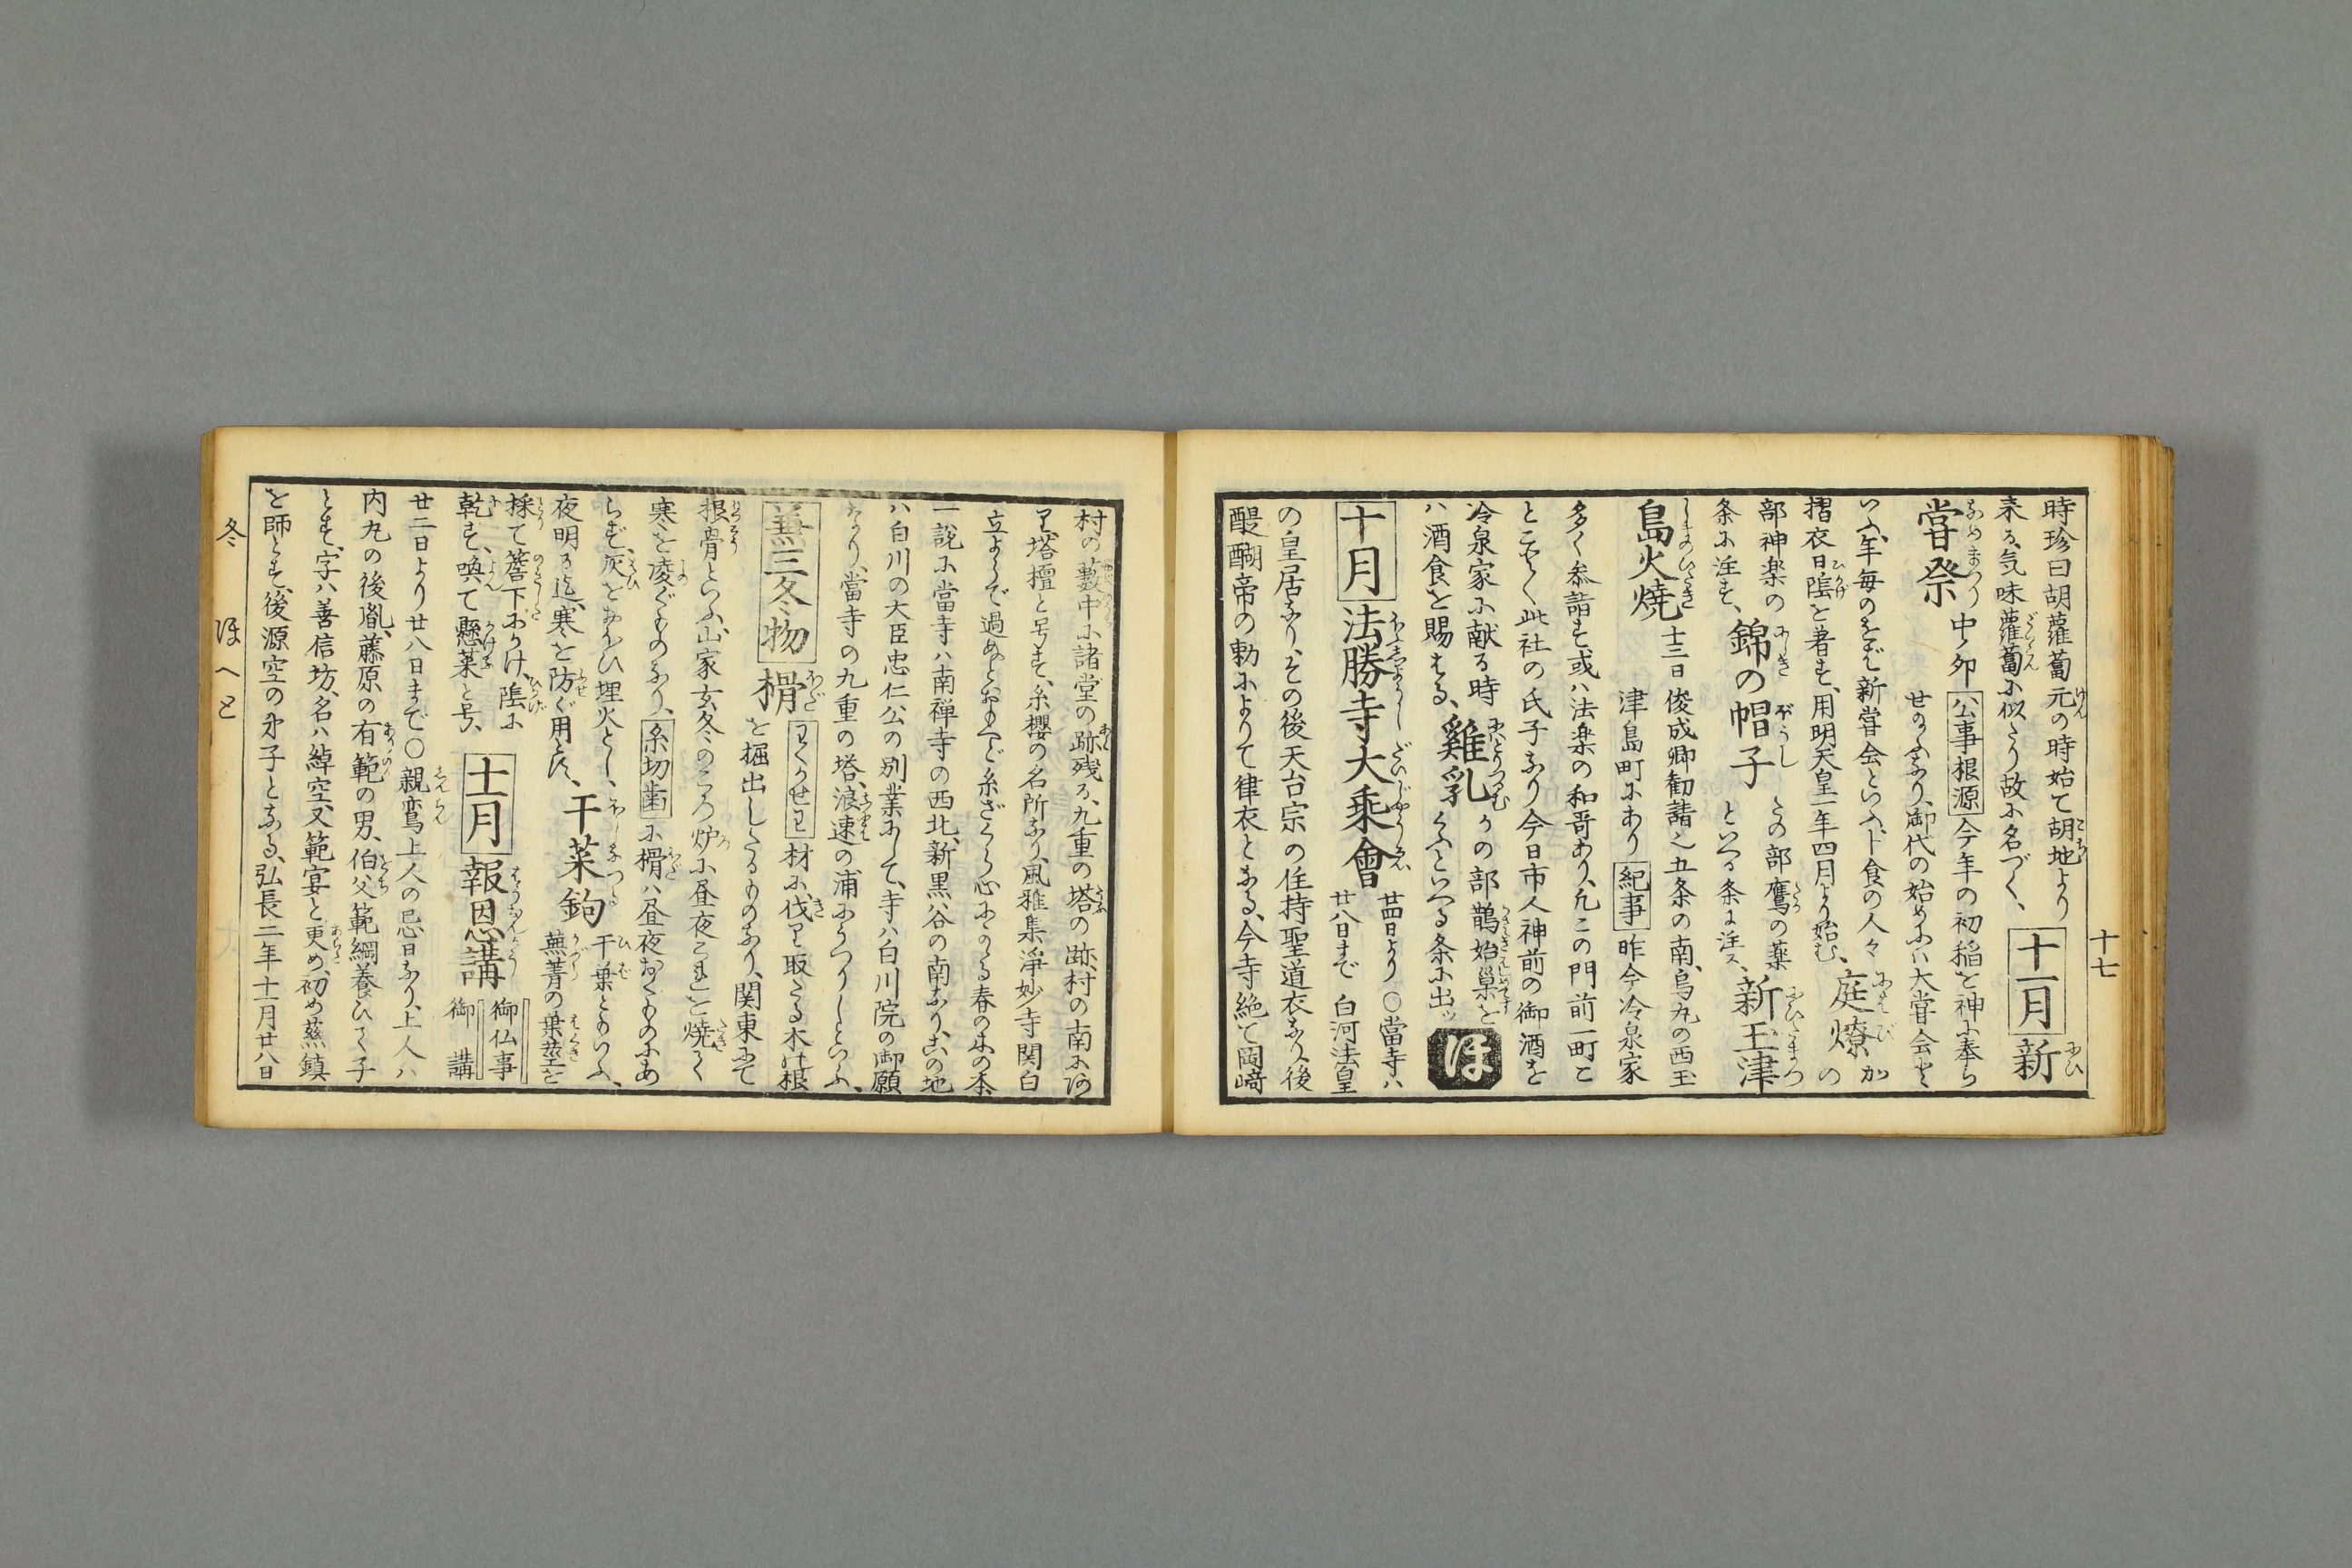 十七
時珍曰胡蘿蔔元の時始て胡地より
来る、気味蘿蔔に似たり故に名づく、 十一月 新
嘗祭 中ノ卯 公事根源 今年の初稲を神に奉ら
せ給ふなり、御代の始めにハ大嘗会と
いふ、年毎のをば新嘗会といふ、卜食の人々
摺衣日陰を著す、用明天皇二年四月より始む、 庭燎 かの
部神楽の条に注す、 錦の帽子 たの部鷹の薬
といへる条に注ス、 新玉津
島火焼 十三日 俊成卿勧請也五条の南、烏丸の西玉
津島町にあり 紀事 昨今冷泉家
多く参詣す、或ハ法楽の和哥あり、凡この門前一町こ
とごとく此社の氏子なり今日市人神前の御酒を
冷泉家に献る時 雞乳 かの部鵲始巣を
ハ酒食を賜はる、 くふといへる条に出ッ ほ
十月 法勝寺大乗會 廿四日より 〇當寺ハ
廿八日まで 白河法皇
の皇居なり、その後天台宗の住持聖道衣なり、後
醍醐帝の勅によりて律衣となる、今寺絶て岡﨑
村の藪中に諸堂の跡残る、九重の塔の跡、村の南に有
り、塔檀と号す、糸櫻の名所なり、風雅集、淨妙寺関白
立よらで過ぬとおもへど糸ざくら心にかゝる春の木の本
一説に當寺ハ南禅寺の西北、新黒谷の南なり、この地
ハ白川の大臣忠仁公の別業にして、寺ハ白川院の御願
なり、當寺の九重の塔、浪速の浦にうつりしといふ、
兼三冬物 榾 わくかせわ 材に、伐り取たる木の根
を掘出したるものなり、関東にて
根骨といふ、山家玄冬のころ炉に昼夜これを焼く
寒を凌ぐものなり、 糸切歯 に榾ハ昼夜おくものにあ
らず、灰をおほひ埋火とし、
夜明る迄、寒を防ぐ用とす、 干菜釣 干葉ともいふ、
蕪菁の葉茎を
採て簷下にかけ、陰に
乾す、喚て懸菜と号、 十一月 報恩講 御仏事
御講
廿二日より廿八日まで〇親鸞上人の忌日なり、上人ハ
内丸の後胤、藤原の有範の男、伯父範綱養ひて子
とす、字ハ善信坊、名ハ綽空、又範宴と更め、初め慈鎮
を師とす、後源空の弟子となる、弘長二年十一月廿八日
冬 ほへと